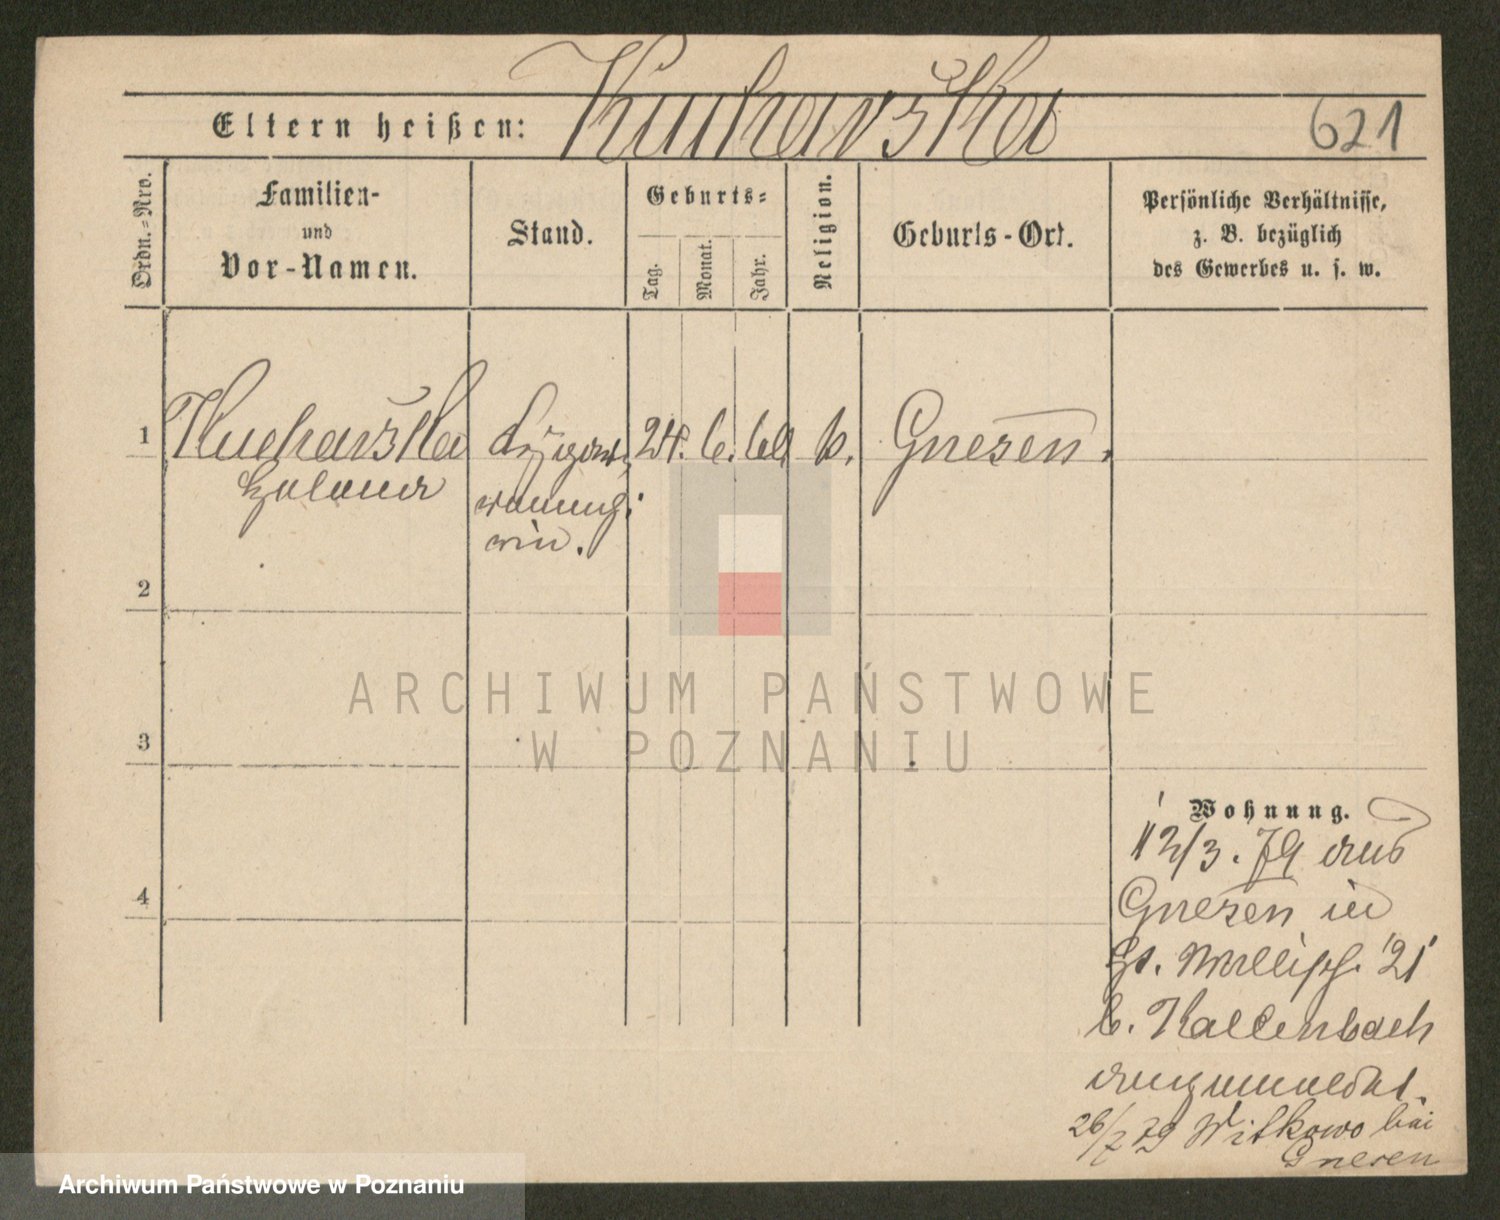 Kucharska
Eltern heißen:
621
Ordn.-Nro.
Familien-
und
Vor-Namen.
Stand.
Geburts-
Tag.
Monat.
Jahr.
Religion.
Geburts-Ort.
Persönliche Verhältnisse,
z. B. bezüglich
des Gewerbes u. s. w.
1
Kucharska
Helena
24. 6. 60 k. Gnesen.
2
3
4
ARCHIWUM PAŃSTWOWE
W POZNANIU
Wohnung.
12/3. 79 aus
Gnesen in
21
b. Kallenbach
angemeldet.
26/7 79 Witkowo bei
Gnesen
Archiwum Państwowe w Poznaniu